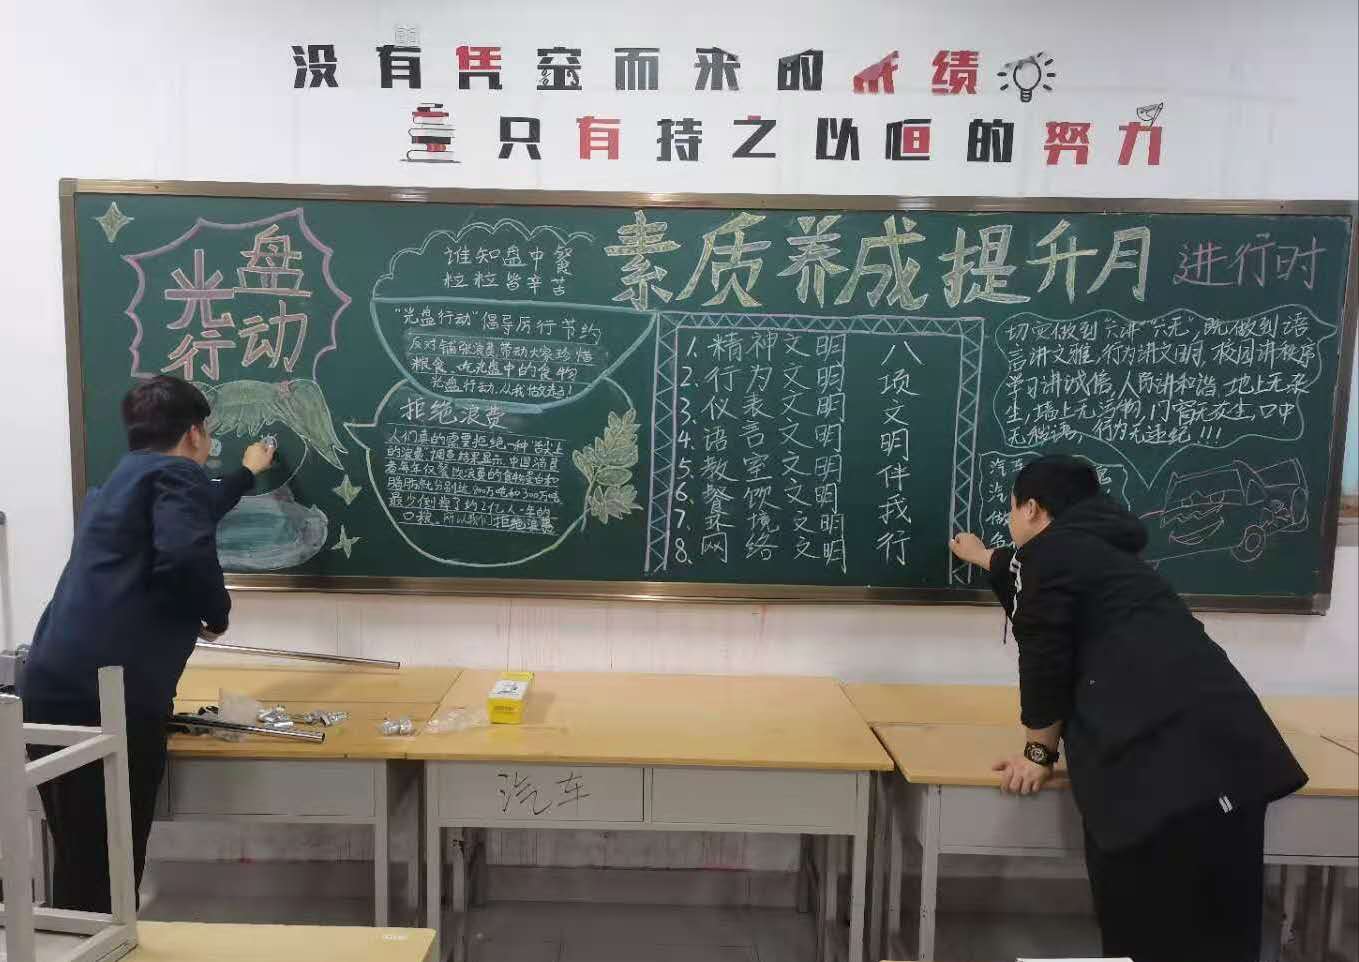 没有凭空而来的成绩
只有持之以恒的努力
光盘
行动
谁知盘中餐
粒粒皆辛苦
"光盘行动"倡导厉行节约
反对铺张浪费带动大家珍惜
粮食、吃光盘中的食物
光盘行动,从我做起!
拒绝浪费
人们真的需要拒绝一种"舌尖上
的浪费"调查结果显示,中国消费
者每年仅餐饮浪费的食物蛋白和
脂肪就分别达800万吨和300万吨
最少倒掉了约2亿人一年的
口粮。所以我们拒绝浪费
素质养成提升月 进行时
1.精神文明
2.行为文明
3.仪表文明
4.语言文明
5.教室文明
6.餐饮文明
7.环境文明
8.网络文明
八项文明伴我行
切实做到"六讲""六无",既做到语
言讲文雅,行为讲文明,校园讲秩序
学习讲诚信,人际讲和谐,地上无杂
生,墙上无污物,门窗无灰尘,口中
无秽语,行为无违纪!!!
汽车
汽
做
汽车